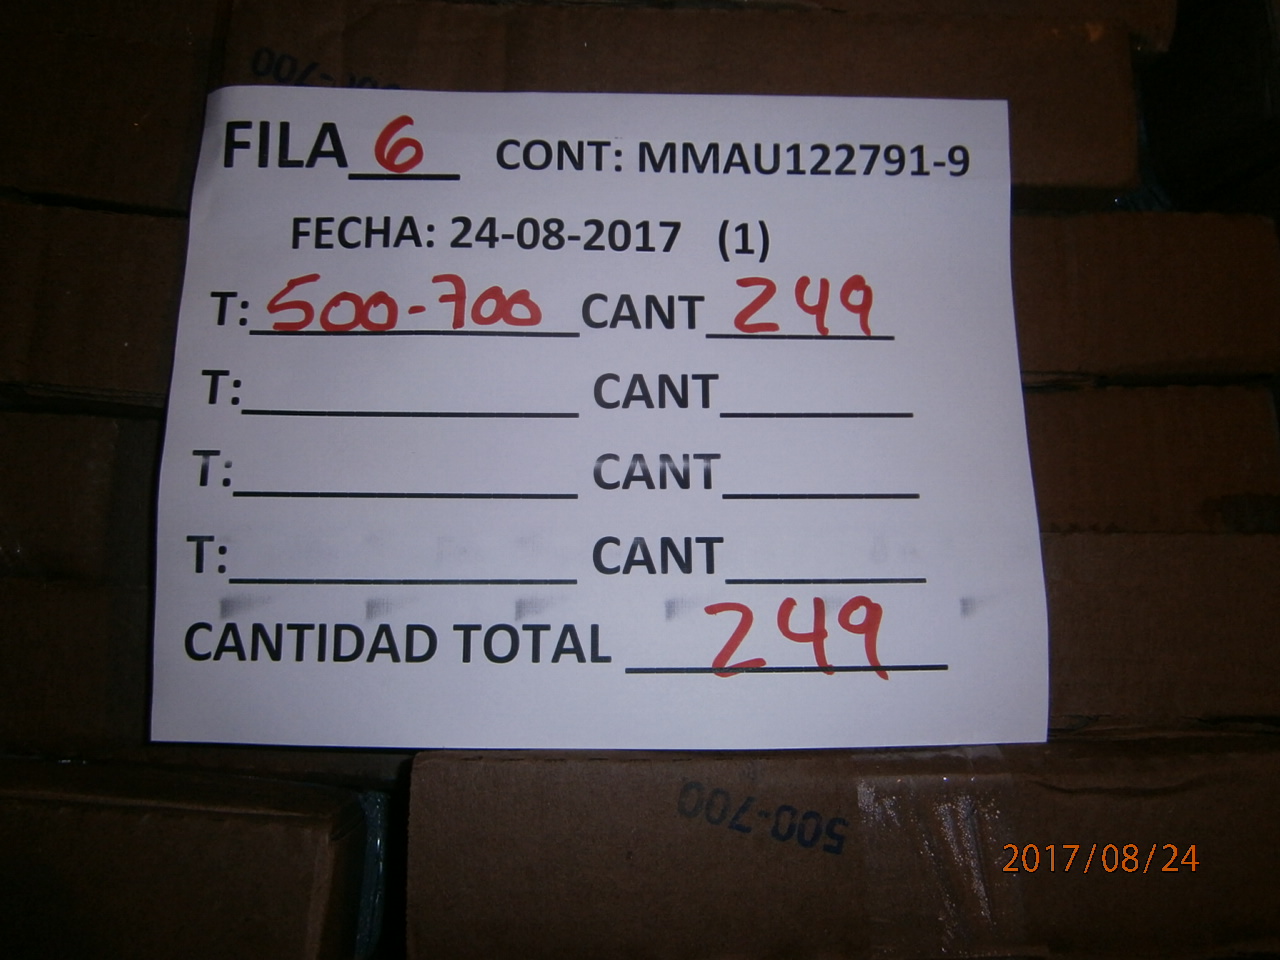 FILA 6 CONT: MMAU122791-9
FECHA: 24-08-2017 (1)
T: 500-700 CANT 249
T: CANT
T: CANT
T: CANT
CANTIDAD TOTAL 249
500-700
2017/08/24